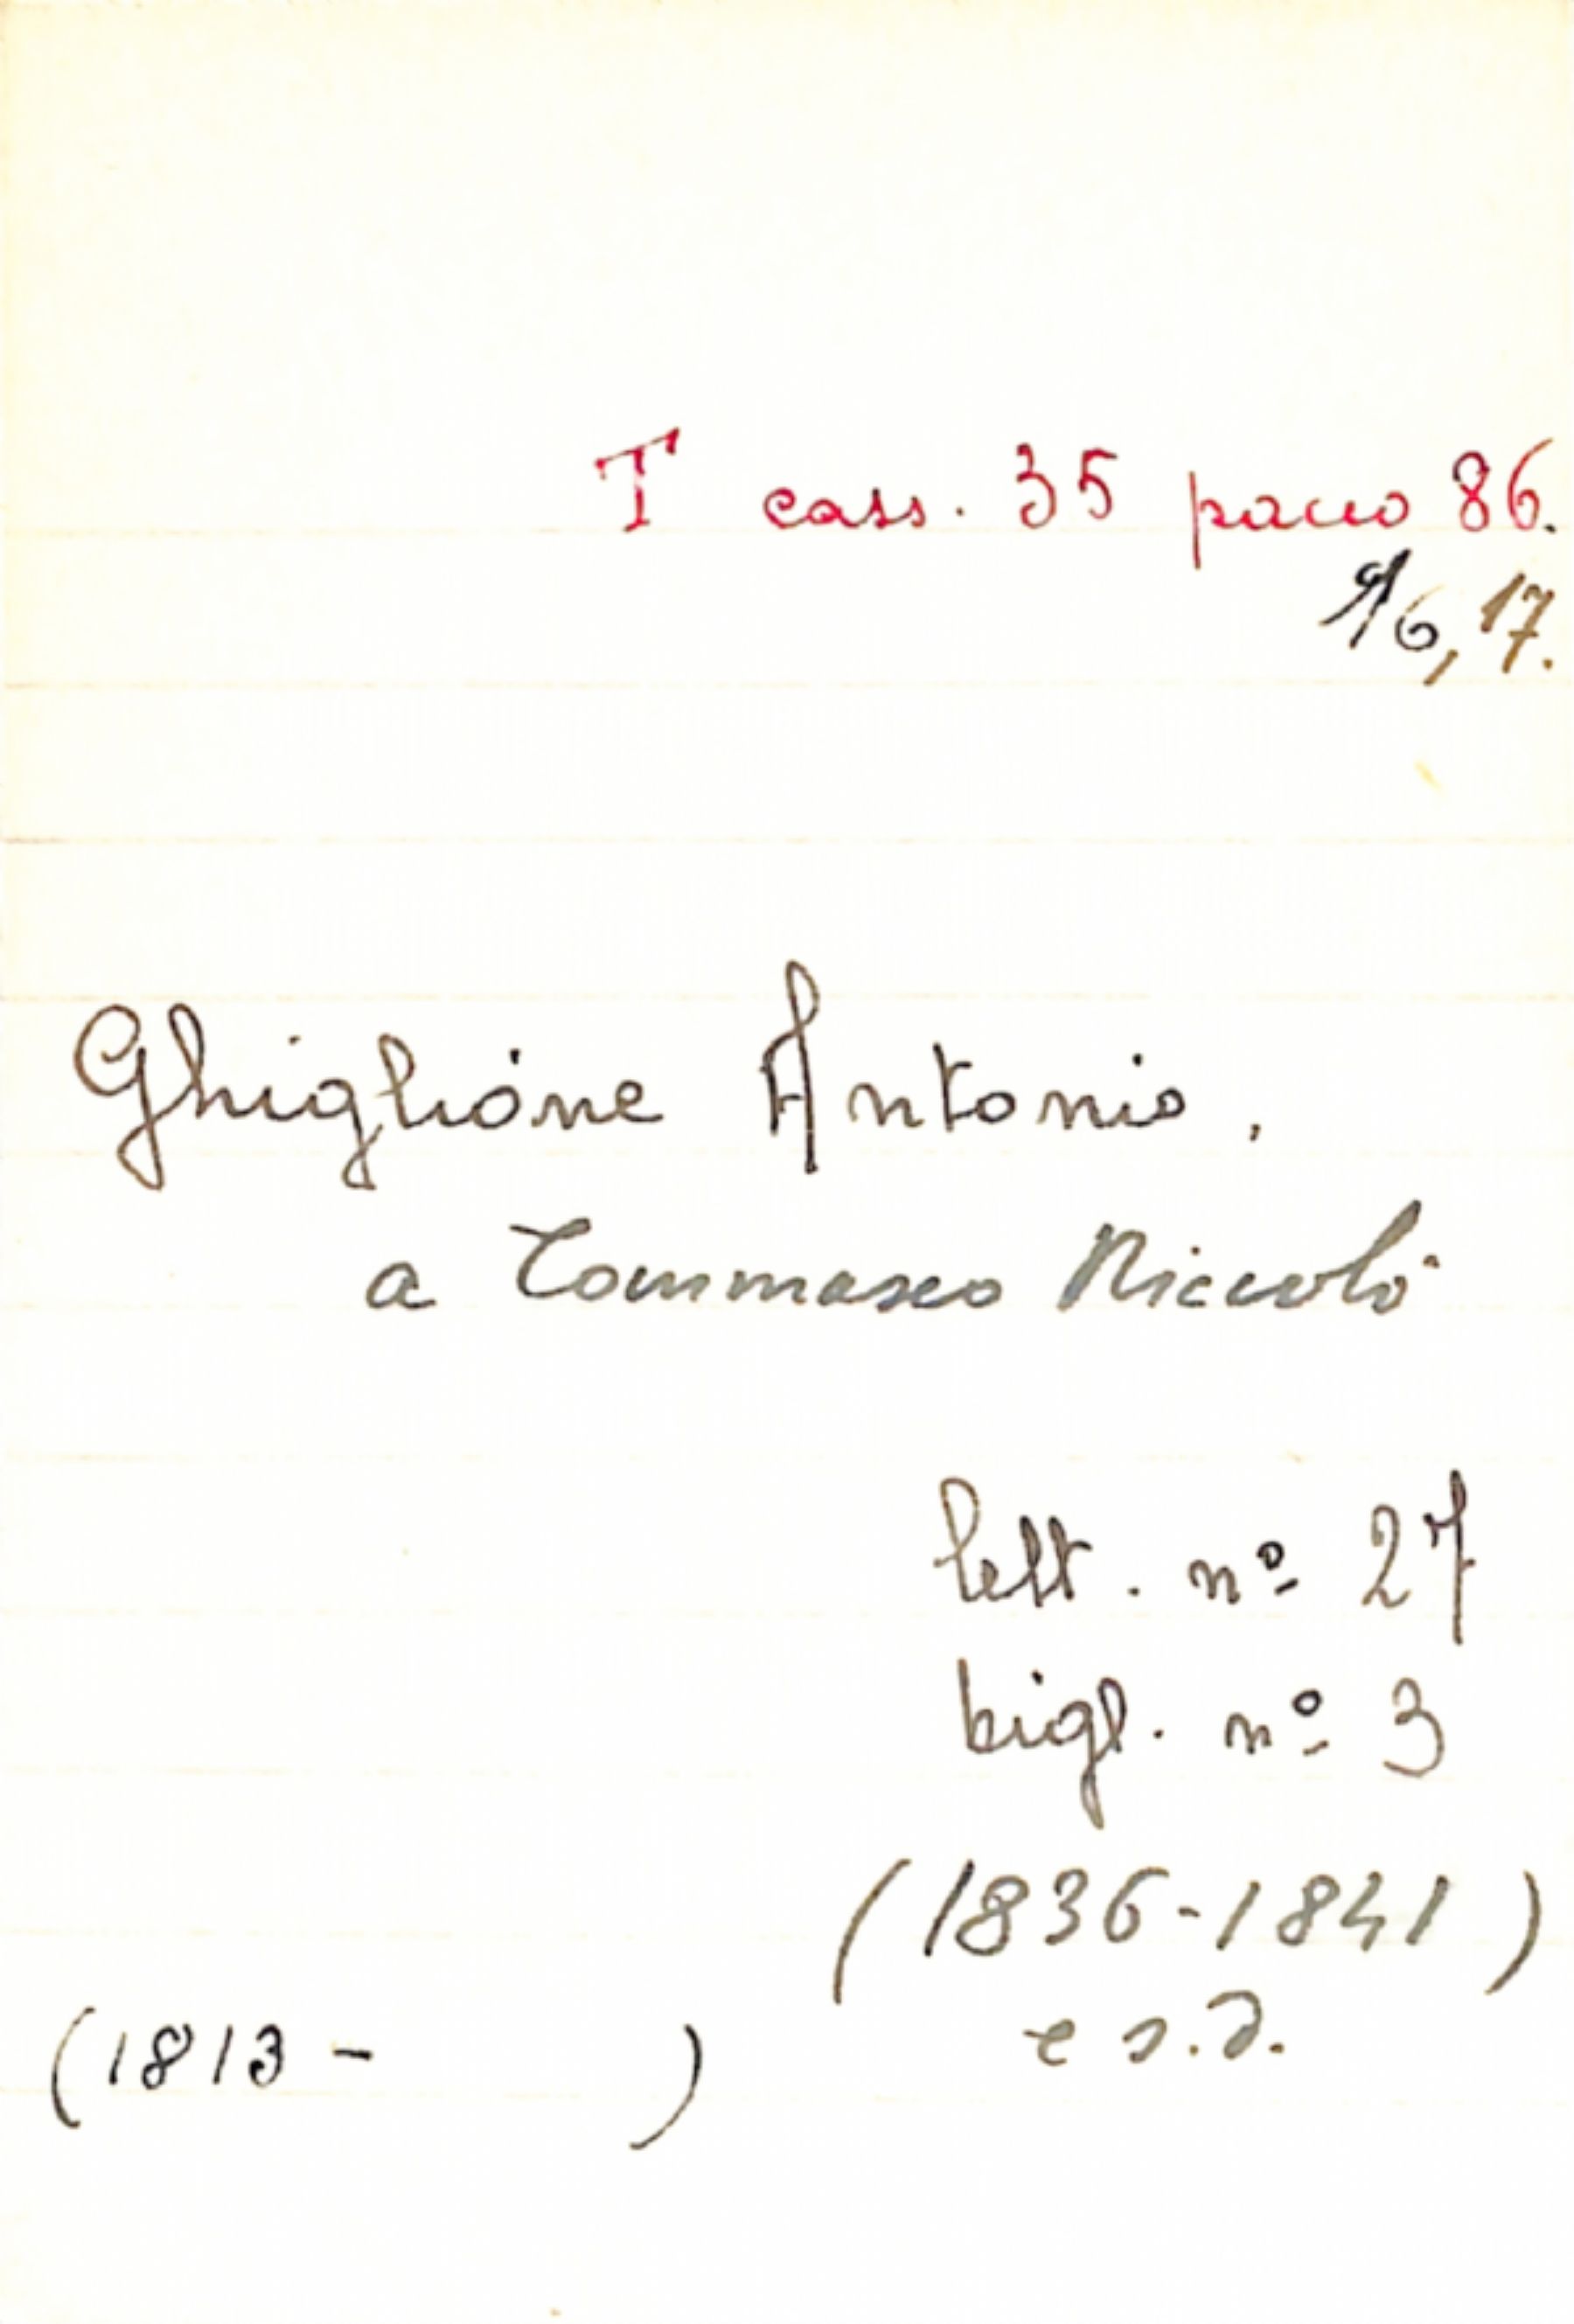 T cass. 35 pacco 86.
16, 17.
Ghiglione Antonio,
a Tommaseo Niccolò
lett. nº 27
bigl. nº 3
(1836-1841)
e s.d.
(1813 - )